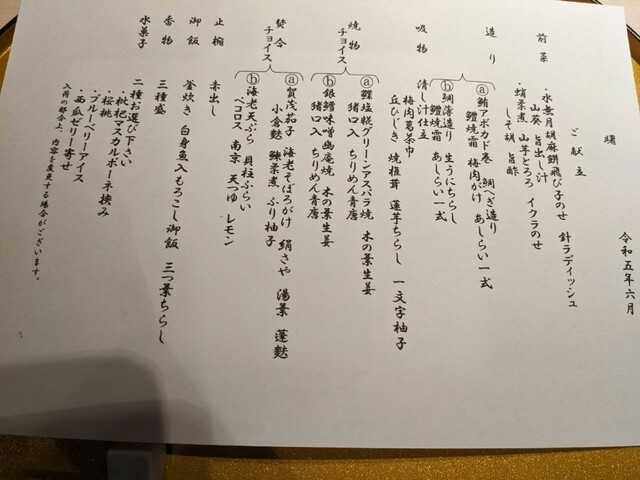 令和五年六月
曙
ご献立
前菜
・水無月胡麻餅飛び子のせ 針ラディッシュ
山葵 旨出し汁
・蛸柔煮 山芋とろろ イクラのせ
しそ胡 旨酢
造り
ⓐ鮪アボカド巻 鯛へぎ造り
鱧焼霜 梅肉がけ あしらい一式
ⓑ鯛薄造り 生うにちらし
鱧焼霜 あしらい一式
吸物
清し汁仕立
梅肉葛茶巾
丘ひじき 焼椎茸 蓮芋ちらし 一文字柚子
焼物
チョイス
ⓐ鱧塩糀グリーンアスパラ焼 木の葉生姜
猪口入 ちりめん青唐
ⓑ銀鱈味噌幽庵焼 木の葉生姜
猪口入 ちりめん青唐
焚合
チョイス
ⓐ賀茂茄子 海老そぼろがけ 絹さや 湯葉 蓬麩
小倉麩 鰊柔煮 ふり柚子
ⓑ海老天ぷら 貝柱ふらい
ペコロス 南京 天つゆ レモン
止椀
赤出し
御飯
釜炊き 白身魚入もろこし御飯 三つ葉ちらし
香物
三種盛
水菓子
二種お選び下さい
・枇杷マスカルポーネ挟み
・桜桃
・ブルーベリーアイス
・西瓜ゼリー寄せ
入荷の都合上、内容を変更する場合がございます。